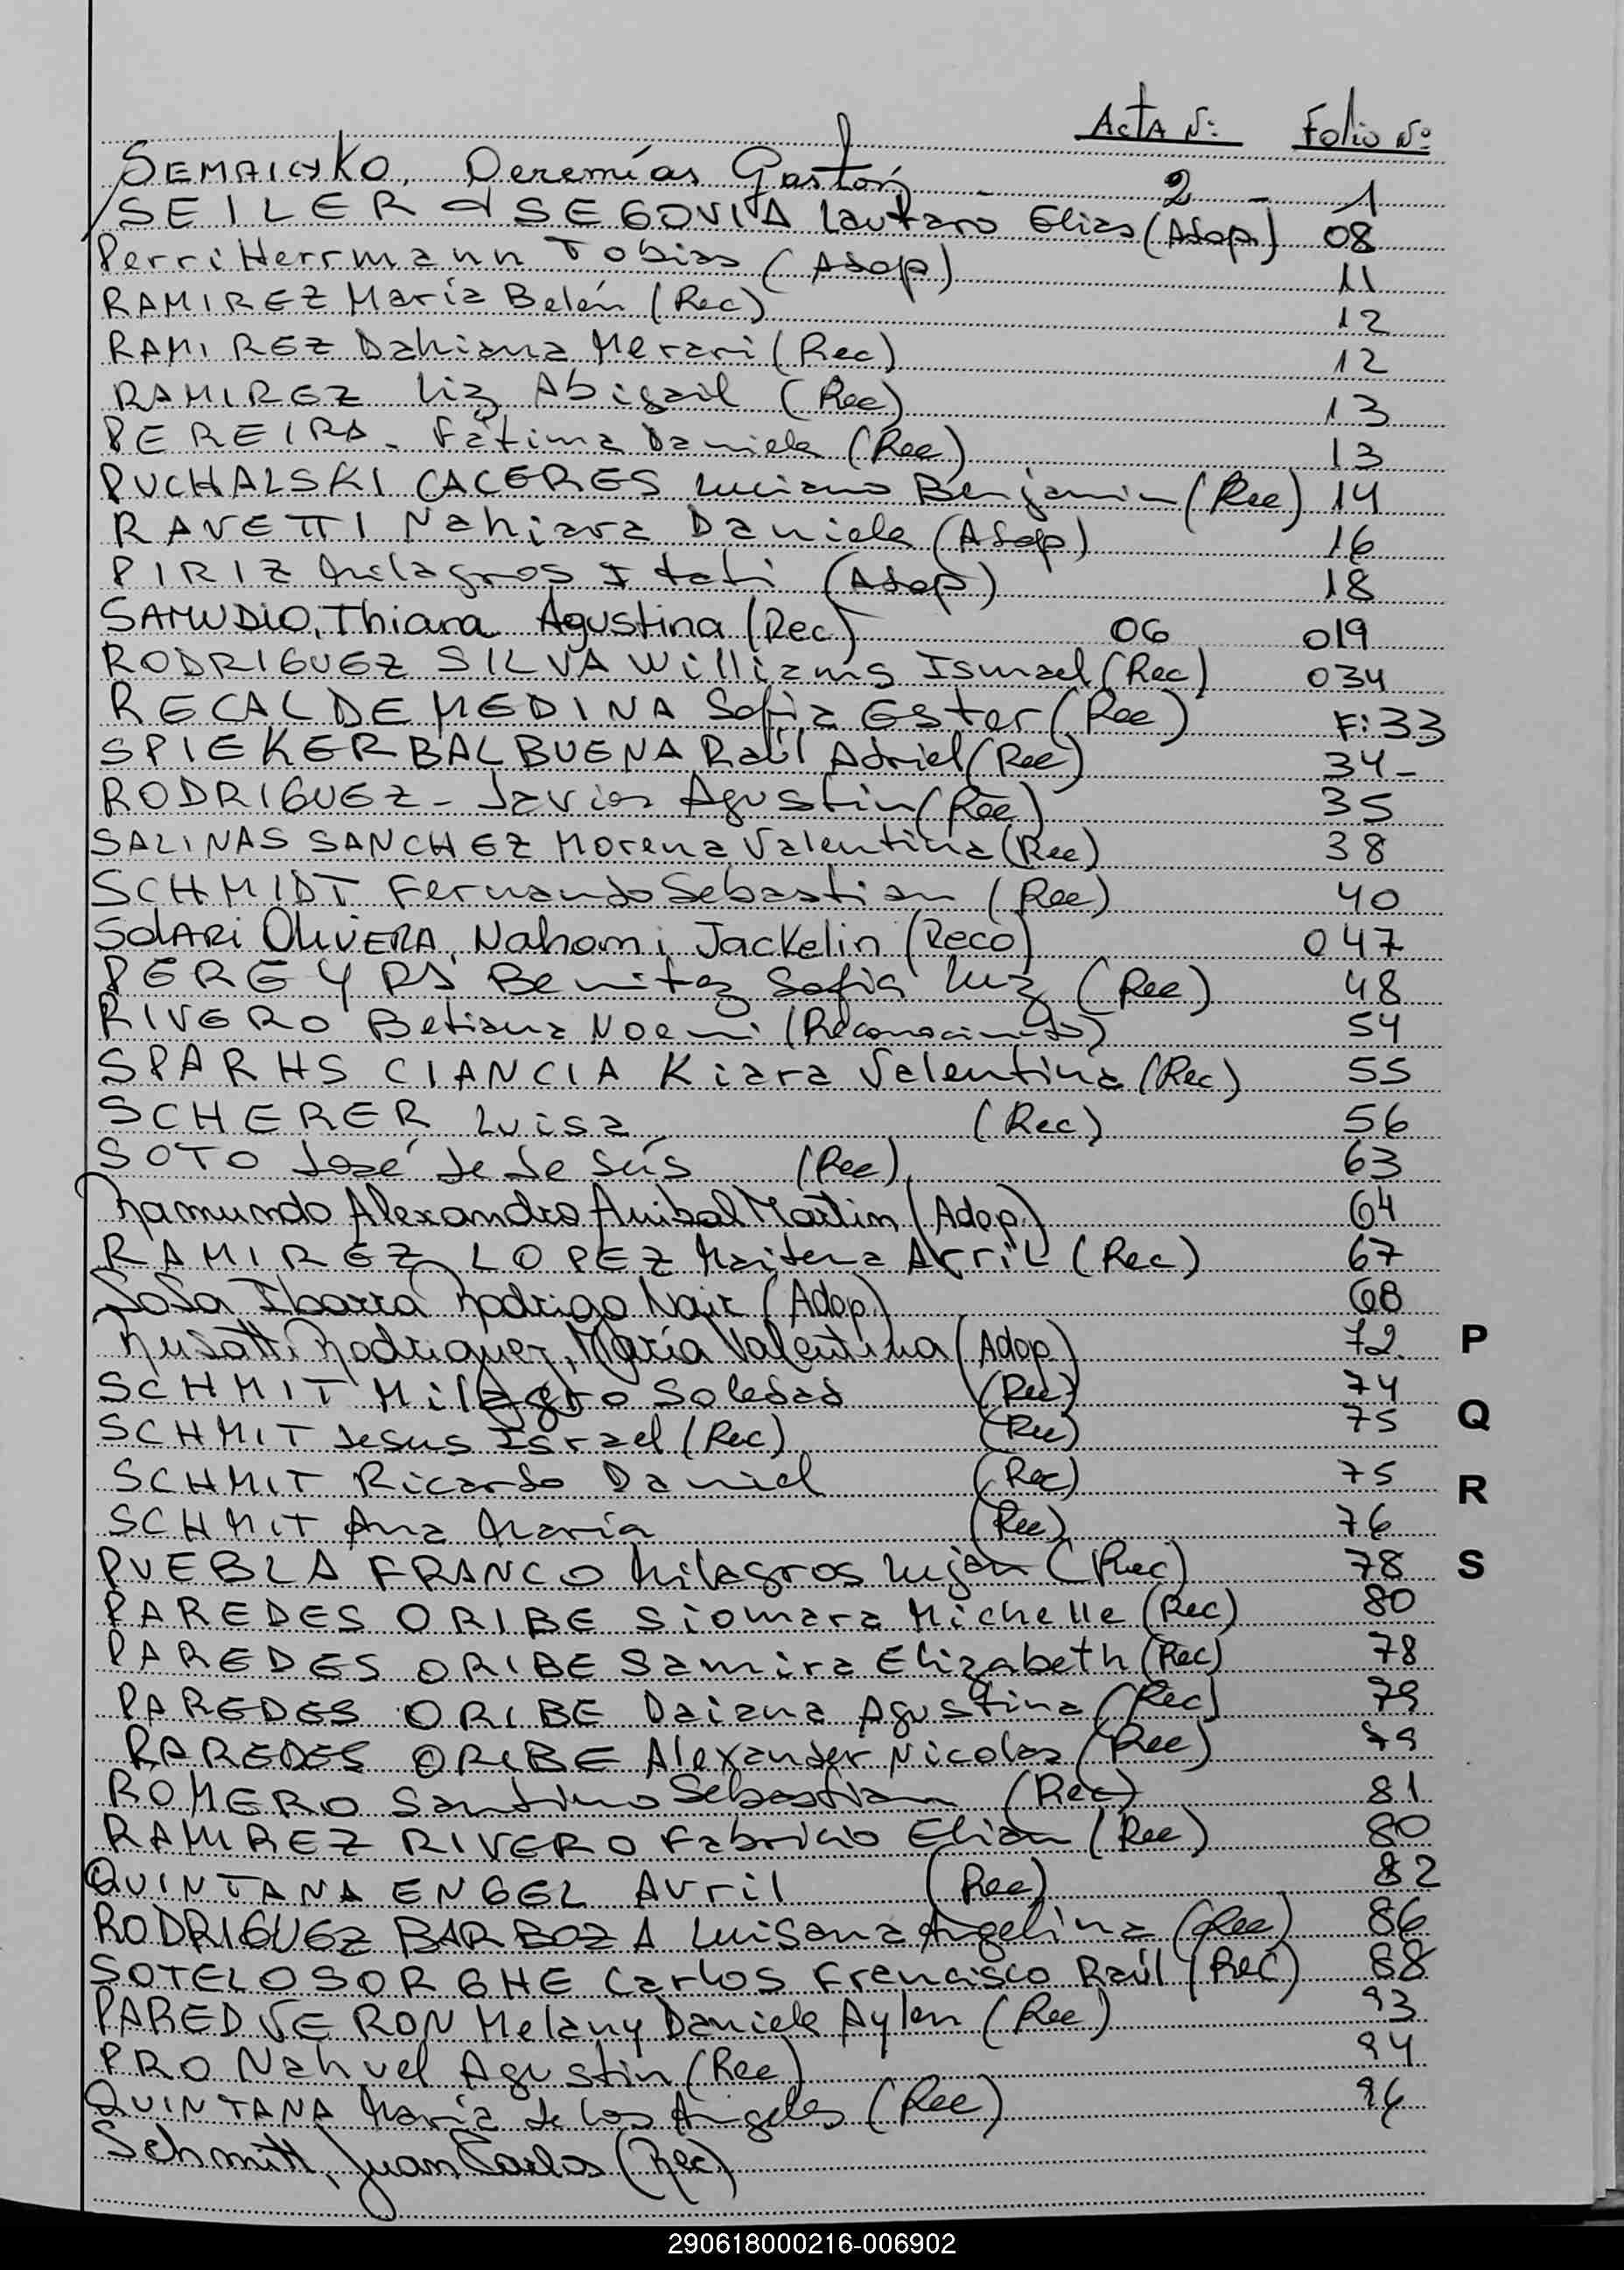 Acta Nº: Folio Nº
SEMAICYKO, Deremías Gastón 2 1
SEILER SEGOVIA Lautaro Elias (Adop) 08
Perri Herrmann Tobias (Adop) 11
RAMIREZ María Belén (Rec) 12
RAMIREZ Dahiana Merari (Rec) 12
RAMIREZ Liz Abigail (Rec) 13
PEREIRA - Fátima Daniela (Rec) 13
PUCHALSKI CACERES Luciano Benjamin (Rec) 14
RAVETTI Nahiara Daniela (Adop) 16
PIRIZ Milagros Itati (Adop) 18
SAMUDIO, Thiara Agustina (Rec) 06 019
RODRIGUEZ SILVA Williams Ismael (Rec) 034
RECALDE MEDINA Sofia Ester (Rec) F: 33
SPIEKER BALBUENA Raúl Adriel (Rec) 34-
RODRIGUEZ - Javier Agustin (Rec) 35
SALINAS SANCHEZ Morena Valentina (Rec) 38
SCHMIDT Fernando Sebastian (Rec) 40
SOLARI OLIVERA, Nahomi Jackelin (Reco) 047
PEREYRA Benitez Sofia Luz (Rec) 48
RIVERO Betiana Noemi (Reconocimiento) 54
SPARHS CIANCIA Kiara Valentina (Rec) 55
SCHERER Luisa (Rec) 56
SOTO José de Jesús (Rec) 63
Ramundo Alexandro Anibal Martin (Adop) 64
RAMIREZ LOPEZ Maitena Avril (Rec) 67
Sosa Ibarra Rodrigo Nair (Adop) 68
Rusatti Rodriguez, María Valentina (Adop) 72 P
SCHMIT Milagro Soledad (Rec) 74
SCHMIT Jesus Israel (Rec) (Rec) 75 Q
SCHMIT Ricardo Daniel (Rec) 75 R
SCHMIT Ana María (Rec) 76
PUEBLA FRANCO Milagros Lujan (Rec) 78 S
PAREDES ORIBE Siomara Michelle (Rec) 80
PAREDES ORIBE Samira Elizabeth (Rec) 78
PAREDES ORIBE Daiana Agustina (Rec) 79
PAREDES ORIBE Alexander Nicolas (Rec) 79
ROMERO Santino Sebastian (Rec) 81
RAMIREZ RIVERO Fabricio Elian (Rec) 80
QUINTANA ENGEL Avril (Rec) 82
RODRIGUEZ BARBOZA Luisana Angelina (Rec) 86
SOTELO SORGHE Carlos Francisco Raúl (Rec) 88
PARED VERON Melany Daniela Aylen (Rec) 93
PRO Nahuel Agustin (Rec) 94
QUINTANA María de los Angeles (Rec) 96
Schmitt, Juan Carlos (Rec)
290618000216-006902